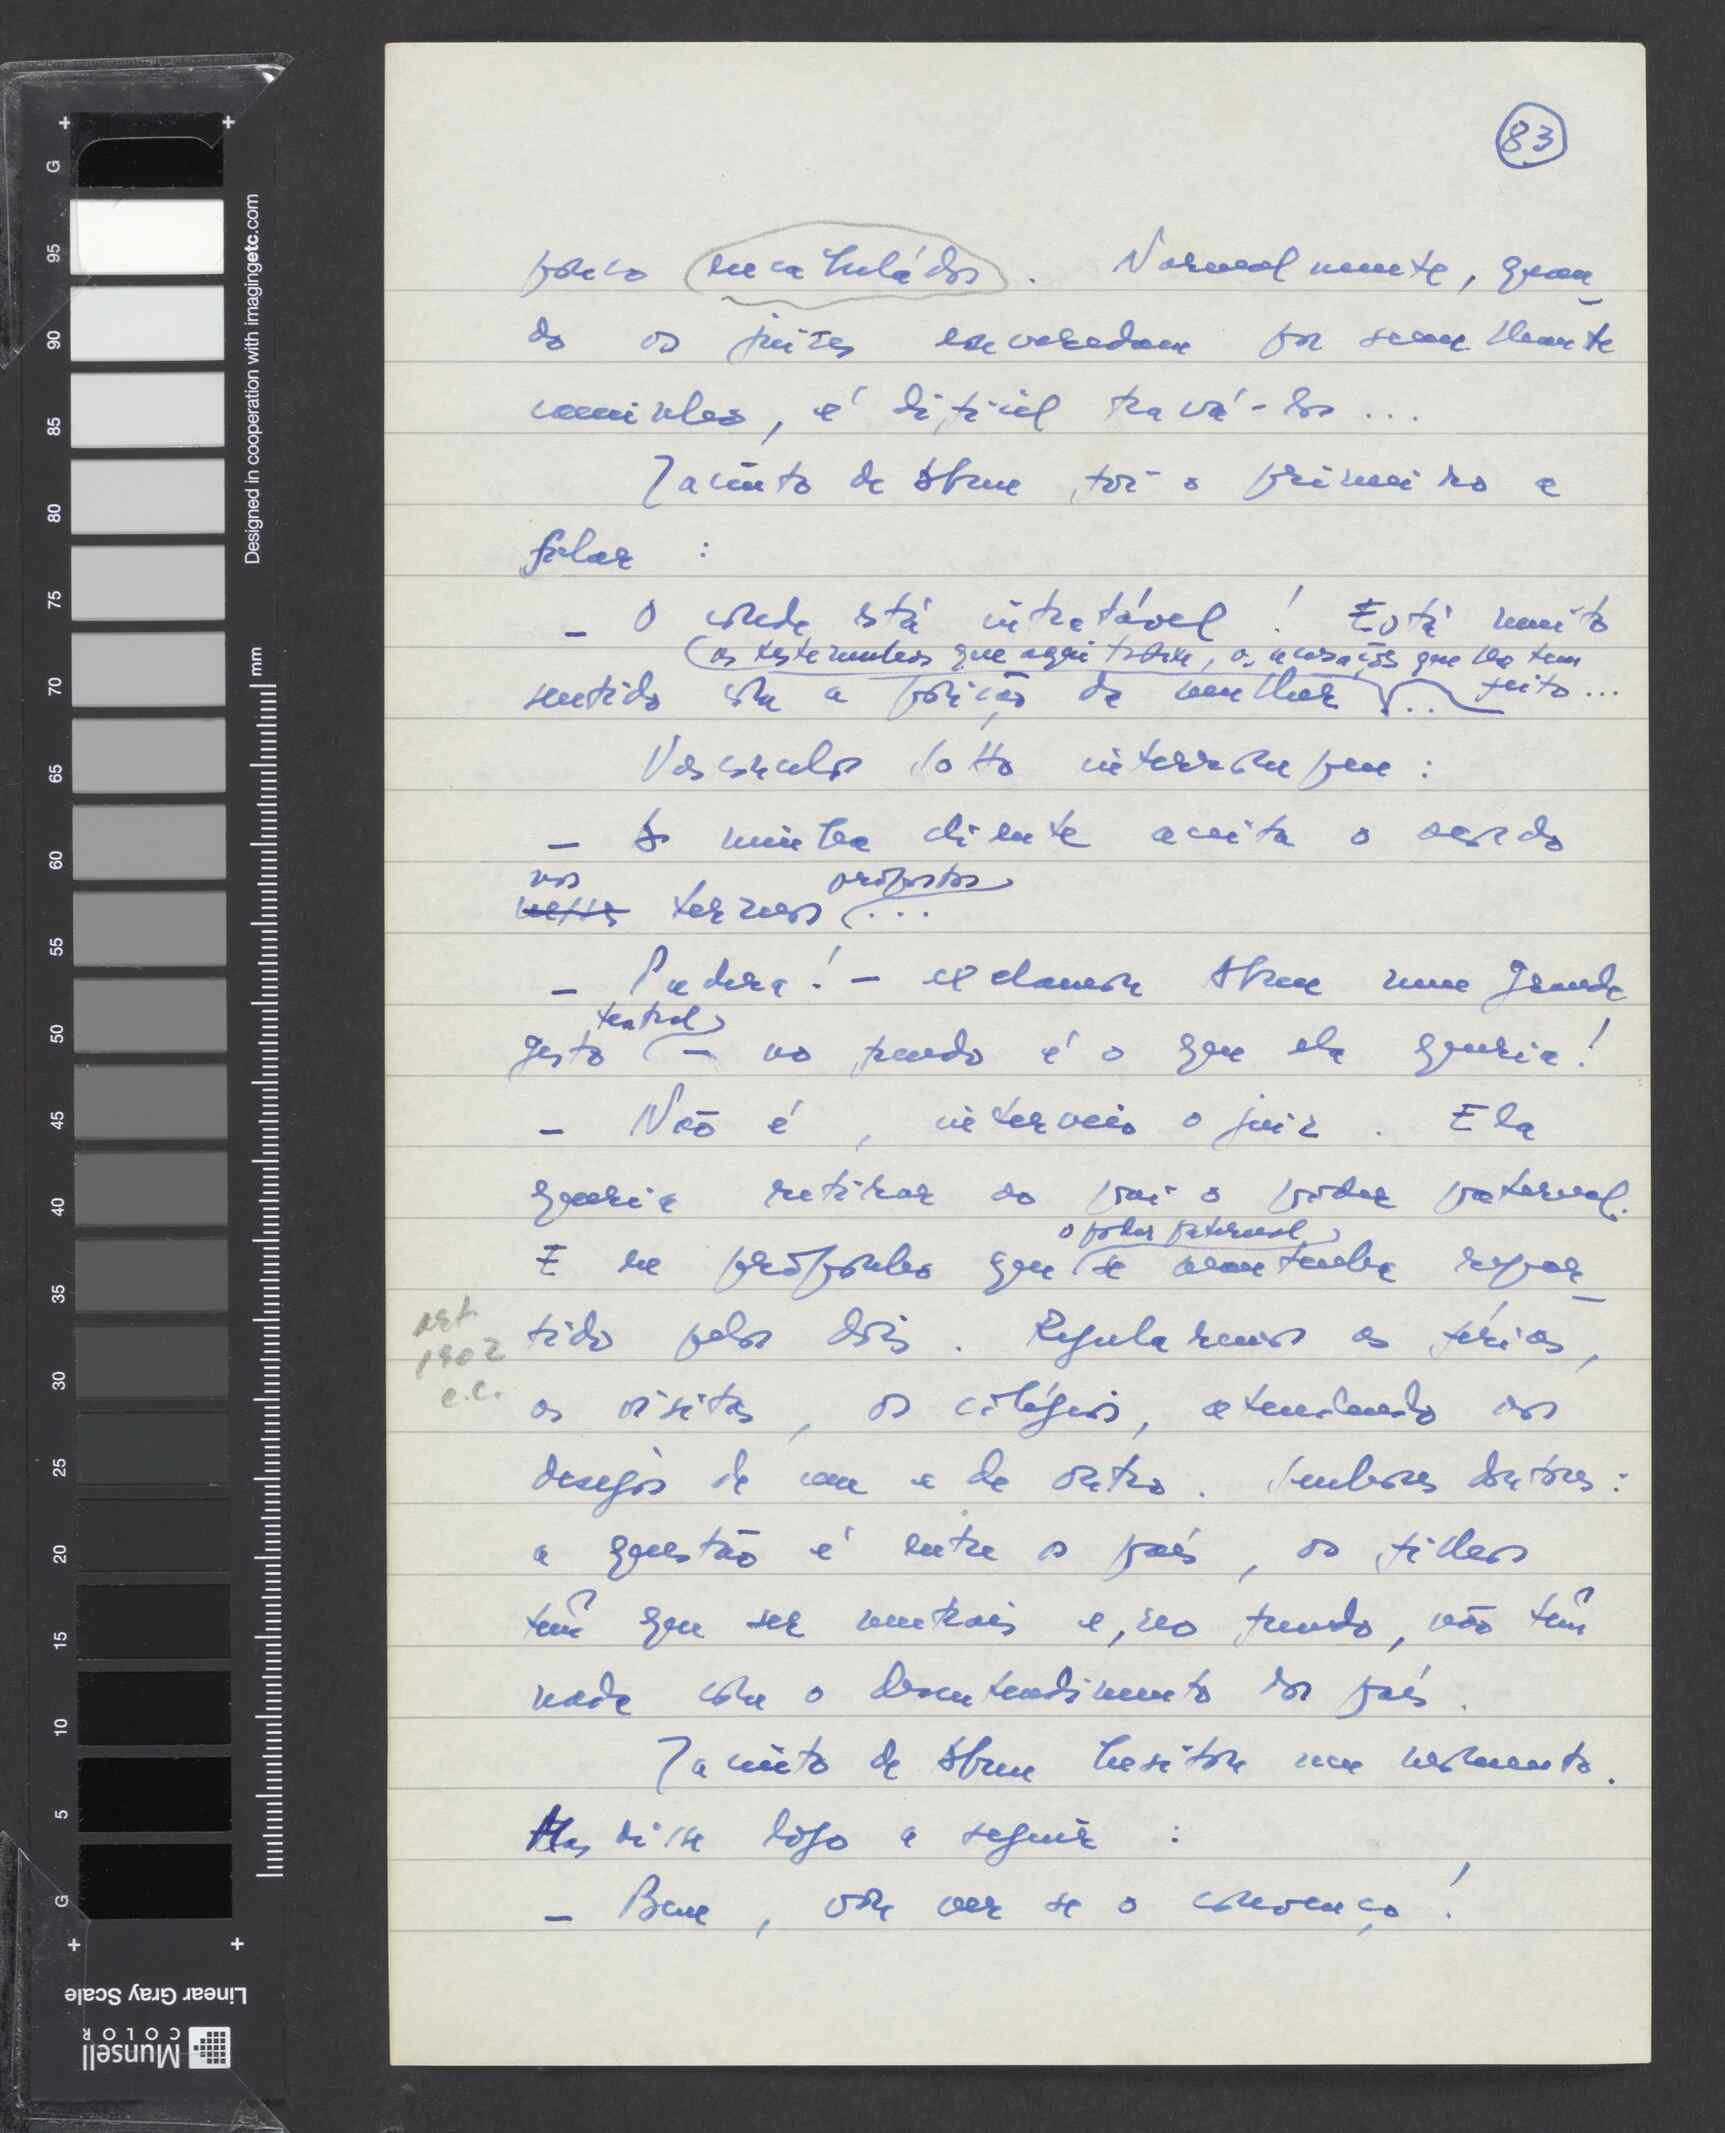 83
pouco encabulados. Normalmente, quan_
do os juízes enveredam por semelhante
caminho, é difícil travá-los ...
Jacinto de Abreu foi o primeiro a
falar :
_ O conde está intratável ! Está muito
os testemunhos que aqui trouxe, as acusações que lhe tem
sentido com a posição da mulher ... feito ...
Vasconcelos Sotto interrompeu :
_ A minha cliente aceita o acordo
nos propostos
termos ...
_ Pudera ! _ exclamou Abreu num grande
teatral
gesto _ no fundo é o que ela queria !
_ Não é , interveio o juiz . Ela
queria retirar ao pai o poder paternal.
o poder paternal
E eu proponho que se mantenha repar_
art.
1902
c.c.
tido pelos dois . Regularemos as férias,
as visitas , os colégios, atendendo aos
desejos de um e de outro . Senhores doutores :
a questão é entre os pais , os filhos
têm que ser neutrais e, no fundo, não têm
nada com o desentendimento dos pais .
Jacinto de Abreu hesitou um momento.
Mas disse logo a seguir :
_ Bem , vou ver se o convenço !
G 95 90 85 80 75 70 65 60 55 50 45 40 35 30 25 20 15 10 5 G
mm
Designed in cooperation with imagingetc.com
Linear Gray Scale
Munsell
COLOR